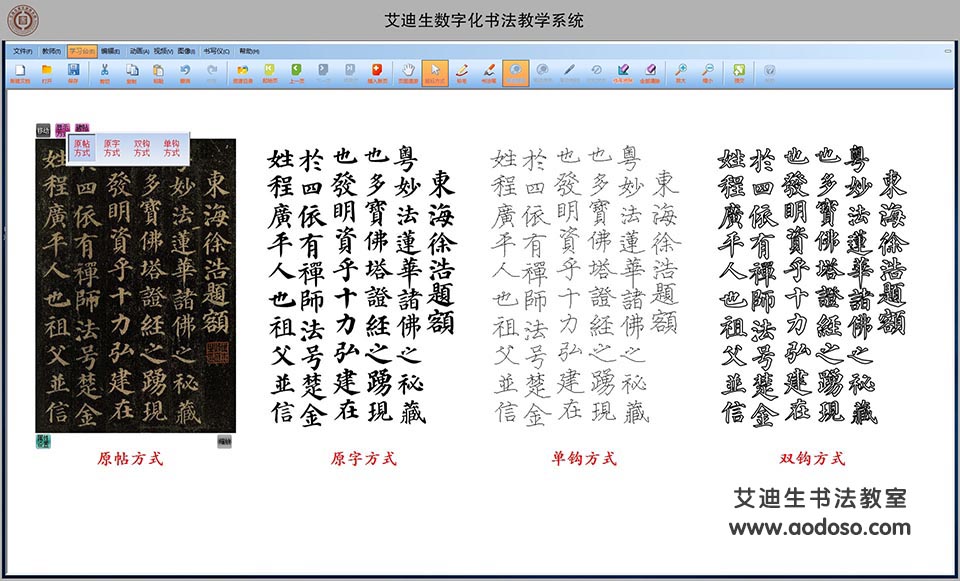 艾迪生数字化书法教学系统
文件(F) 教师(T) 学习台(B) 编辑(E) 动画(A) 视频(V) 图像(I) 书写仪(C) 帮助(H)
新建文档 打开 保存 剪切 复制 粘贴 撤销 上一页 插入新页 放大 缩小 提交
移动
原帖方式 原字方式 双钩方式 单钩方式
東海徐浩題額
妙法蓮華諸佛之祕藏
多寶佛塔證經之踴現
發明資乎十力弘建在
於四依有禪師法号楚金
姓程廣平人也祖父並信
原帖方式
東海徐浩題額
粤妙法蓮華諸佛之祕藏
也多寶佛塔證經之踴現
也發明資乎十力弘建在
於四依有禪師法号楚金
姓程廣平人也祖父並信
原字方式
東海徐浩題額
粤妙法蓮華諸佛之祕藏
也多寶佛塔證經之踴現
也發明資乎十力弘建在
於四依有禪師法号楚金
姓程廣平人也祖父並信
单钩方式
東海徐浩題額
粤妙法蓮華諸佛之祕藏
也多寶佛塔證經之踴現
也發明資乎十力弘建在
於四依有禪師法号楚金
姓程廣平人也祖父並信
双钩方式
艾迪生书法教室
www.aodoso.com